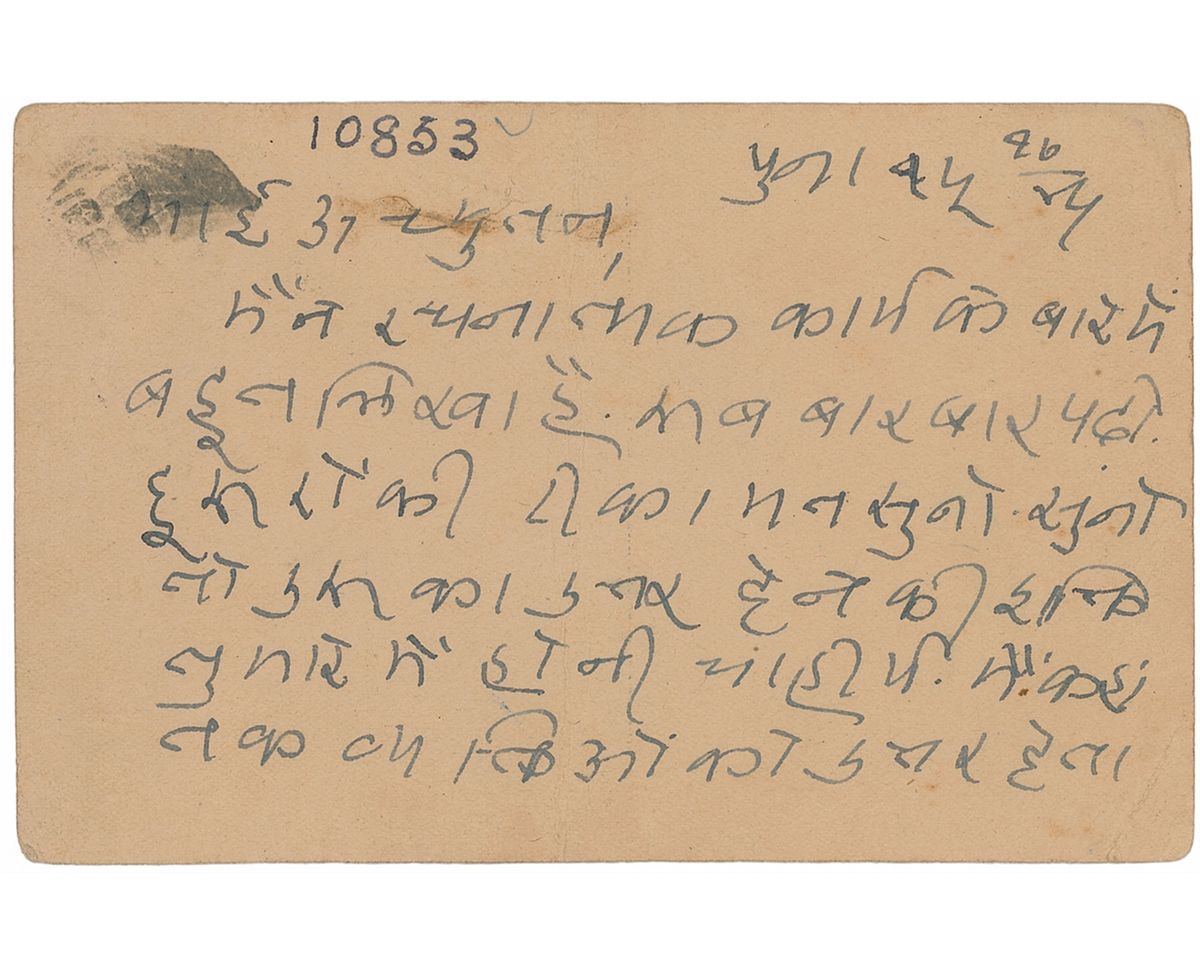 10853
पुना २५
भाई अच्युतन,
मैंने रचनात्मक कार्य के बारेमें
बहूत लिखा है. सब बार बार पढो.
दूसरोंकी टीका मत सुनो. सुनो
तो उसका उत्तर देनेकी शक्ति
तुमारेमें होनी चाहीये. मैं कहां
तक व्यक्तिओंको उत्तर देता